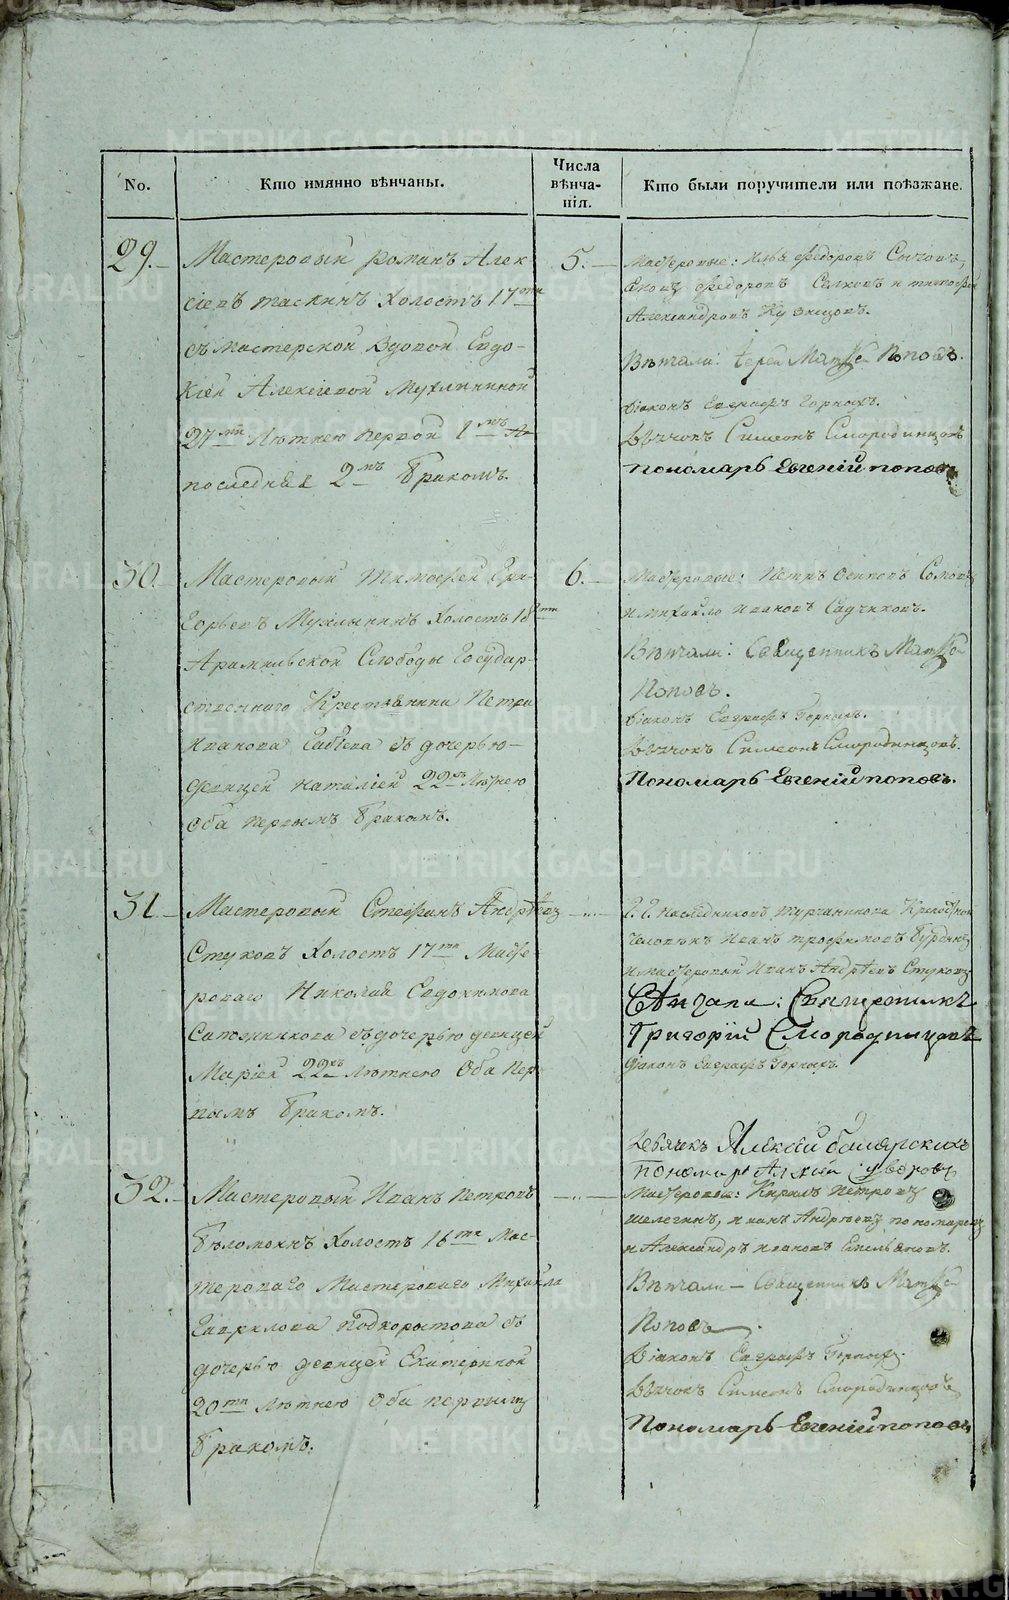 No.
Кто имянно вѣнчаны.
Числа
вѣнча-
нія.
Кто были поручители или поѣзжане.
29.
Мастеровый Романъ Алек-
сіевъ Таскинъ Холостъ 17ти
съ мастерской Вдовой Евдо-
кіей Алексіевой Мухлыниной
27ми Лѣтнею первой 1мъ а
последняя 2мъ бракомъ.
5.
Мастеровые: Илья Федоровъ Сычовъ,
Федоровъ и Тимофей
Александровъ Кузнецовъ.
Вѣнчали: Іерей Матѳей Поповъ.
Діаконъ Евграфъ Горныхъ.
Дьячокъ Симеонъ Смородинцовъ
Пономарь Евгеній Поповъ
30.
Мастеровый Тимофей Гри-
горьевъ Мухлынинъ Холостъ 18ти
Арамильской Слободы Государ-
ственнаго Крестьянина Петра
Иванова съ дочерью
девицей Наталіей 22хъ Лѣтнею
Оба первымъ бракомъ.
6.
Мастеровые: Петръ Осиповъ
и Михайло Ивановъ Садчиковъ.
Вѣнчали: Священникъ Матѳей
Поповъ.
Діаконъ Евграфъ Горныхъ.
Дьячокъ Симеонъ Смородинцовъ.
Пономарь Евгеній Поповъ.
31
Мастеровый Стефанъ Андрѣевъ
Стуковъ Холостъ 17ти Масте-
роваго Николая Евдокимова
Сапожникова съ дочерью девицей
Маріей 22хъ Лѣтнею Оба пер-
вымъ бракомъ.
Г. Г. наследниковъ Турчанинова Крепостной
человѣкъ Иванъ Трофимовъ
и мастеровый Иванъ Андрѣевъ Стуковъ
Вѣнчали: Священникъ
Григорій Смородинцовъ
Діаконъ Евграфъ Горныхъ.
Дьячекъ Алексѣй Боярскихъ
Пономарь Суворовъ
32.
Мастеровый Иванъ Петровъ
Бѣломоинъ Холостъ 16ти Мас-
тероваго Мастероваго Михайла
Гаврилова Подкорытова съ
дочерью девицей Екатериной
20ти Лѣтнею Оба первымъ
бракомъ.
Мастеровые: Кирилъ Петровъ
Шелегинъ, Иванъ Андрѣевъ Пономаревъ
и Александръ Ивановъ Емельяновъ.
Вѣнчали — Священникъ Матѳей
Поповъ.
Діаконъ Евграфъ Горныхъ.
Дьячокъ Симеонъ Смородинцовъ
Пономарь Евгеній Поповъ
METRIKI.GASO-URAL.RU